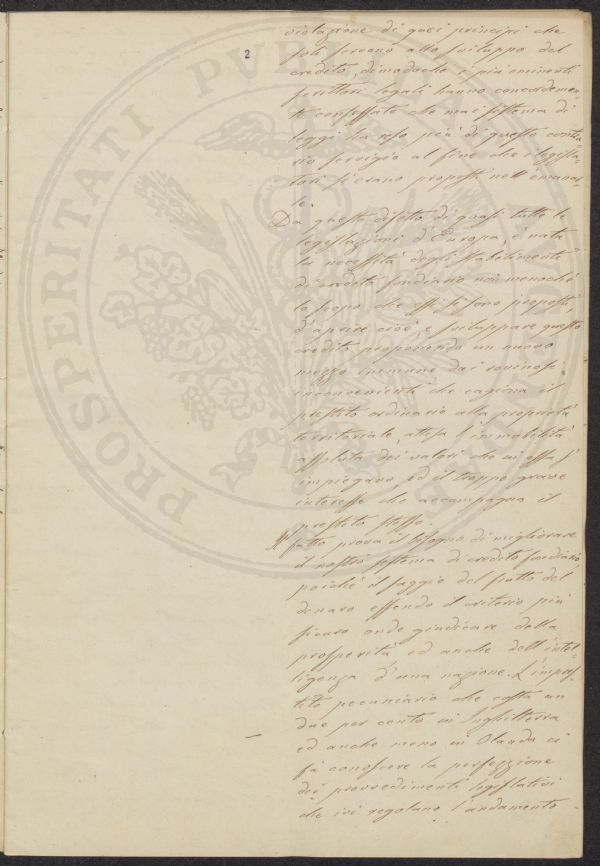 2
violazione di quei principi che
soli servono allo sviluppo del
credito, dimodochè i più eminenti
scrittori legali hanno concordemen-
te confessato che mai sistema di
leggi ha reso più di questo contra-
rio servigio al fine che i legisla-
tori si erano proposti nell'emanar-
le.
Da questo difetto di quasi tutte le
legislazioni d'Europa, è nata
la necessità degli stabilimenti
di credito fondiario non menochè
lo scopo che essi si sono proposti,
d'aprire cioè, e sviluppare questo
credito proponendo un nuovo
mezzo immune dai rovinosi
inconvenienti che cagiona il
prestito ordinario alla proprietà
territoriale, attesa l'immobilità
assoluta dei valori che in essa s'
impiegano, ed il troppo grave
interesse che accompagna il
prestito stesso.
Il fatto prova il bisogno di migliorare
il nostro sistema di credito fondiario,
poichè il saggio del frutto del
denaro essendo il criterio più
sicuro onde giudicare della
prosperità ed anche dell'intel-
ligenza d'una nazione. L'impres-
tito pecuniario che costa un
due per cento in Inghilterra
ed anche meno in Olanda ci
fa conoscere la perfezzione
dei provvedimenti legislativi
che ivi regolano l'andamento
PROSPERITATI PVBLICAE